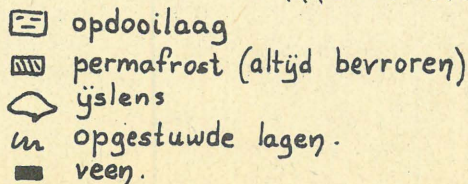 opdooilaag
permafrost (altijd bevroren)
ijslens
opgestuwde lagen.
veen.